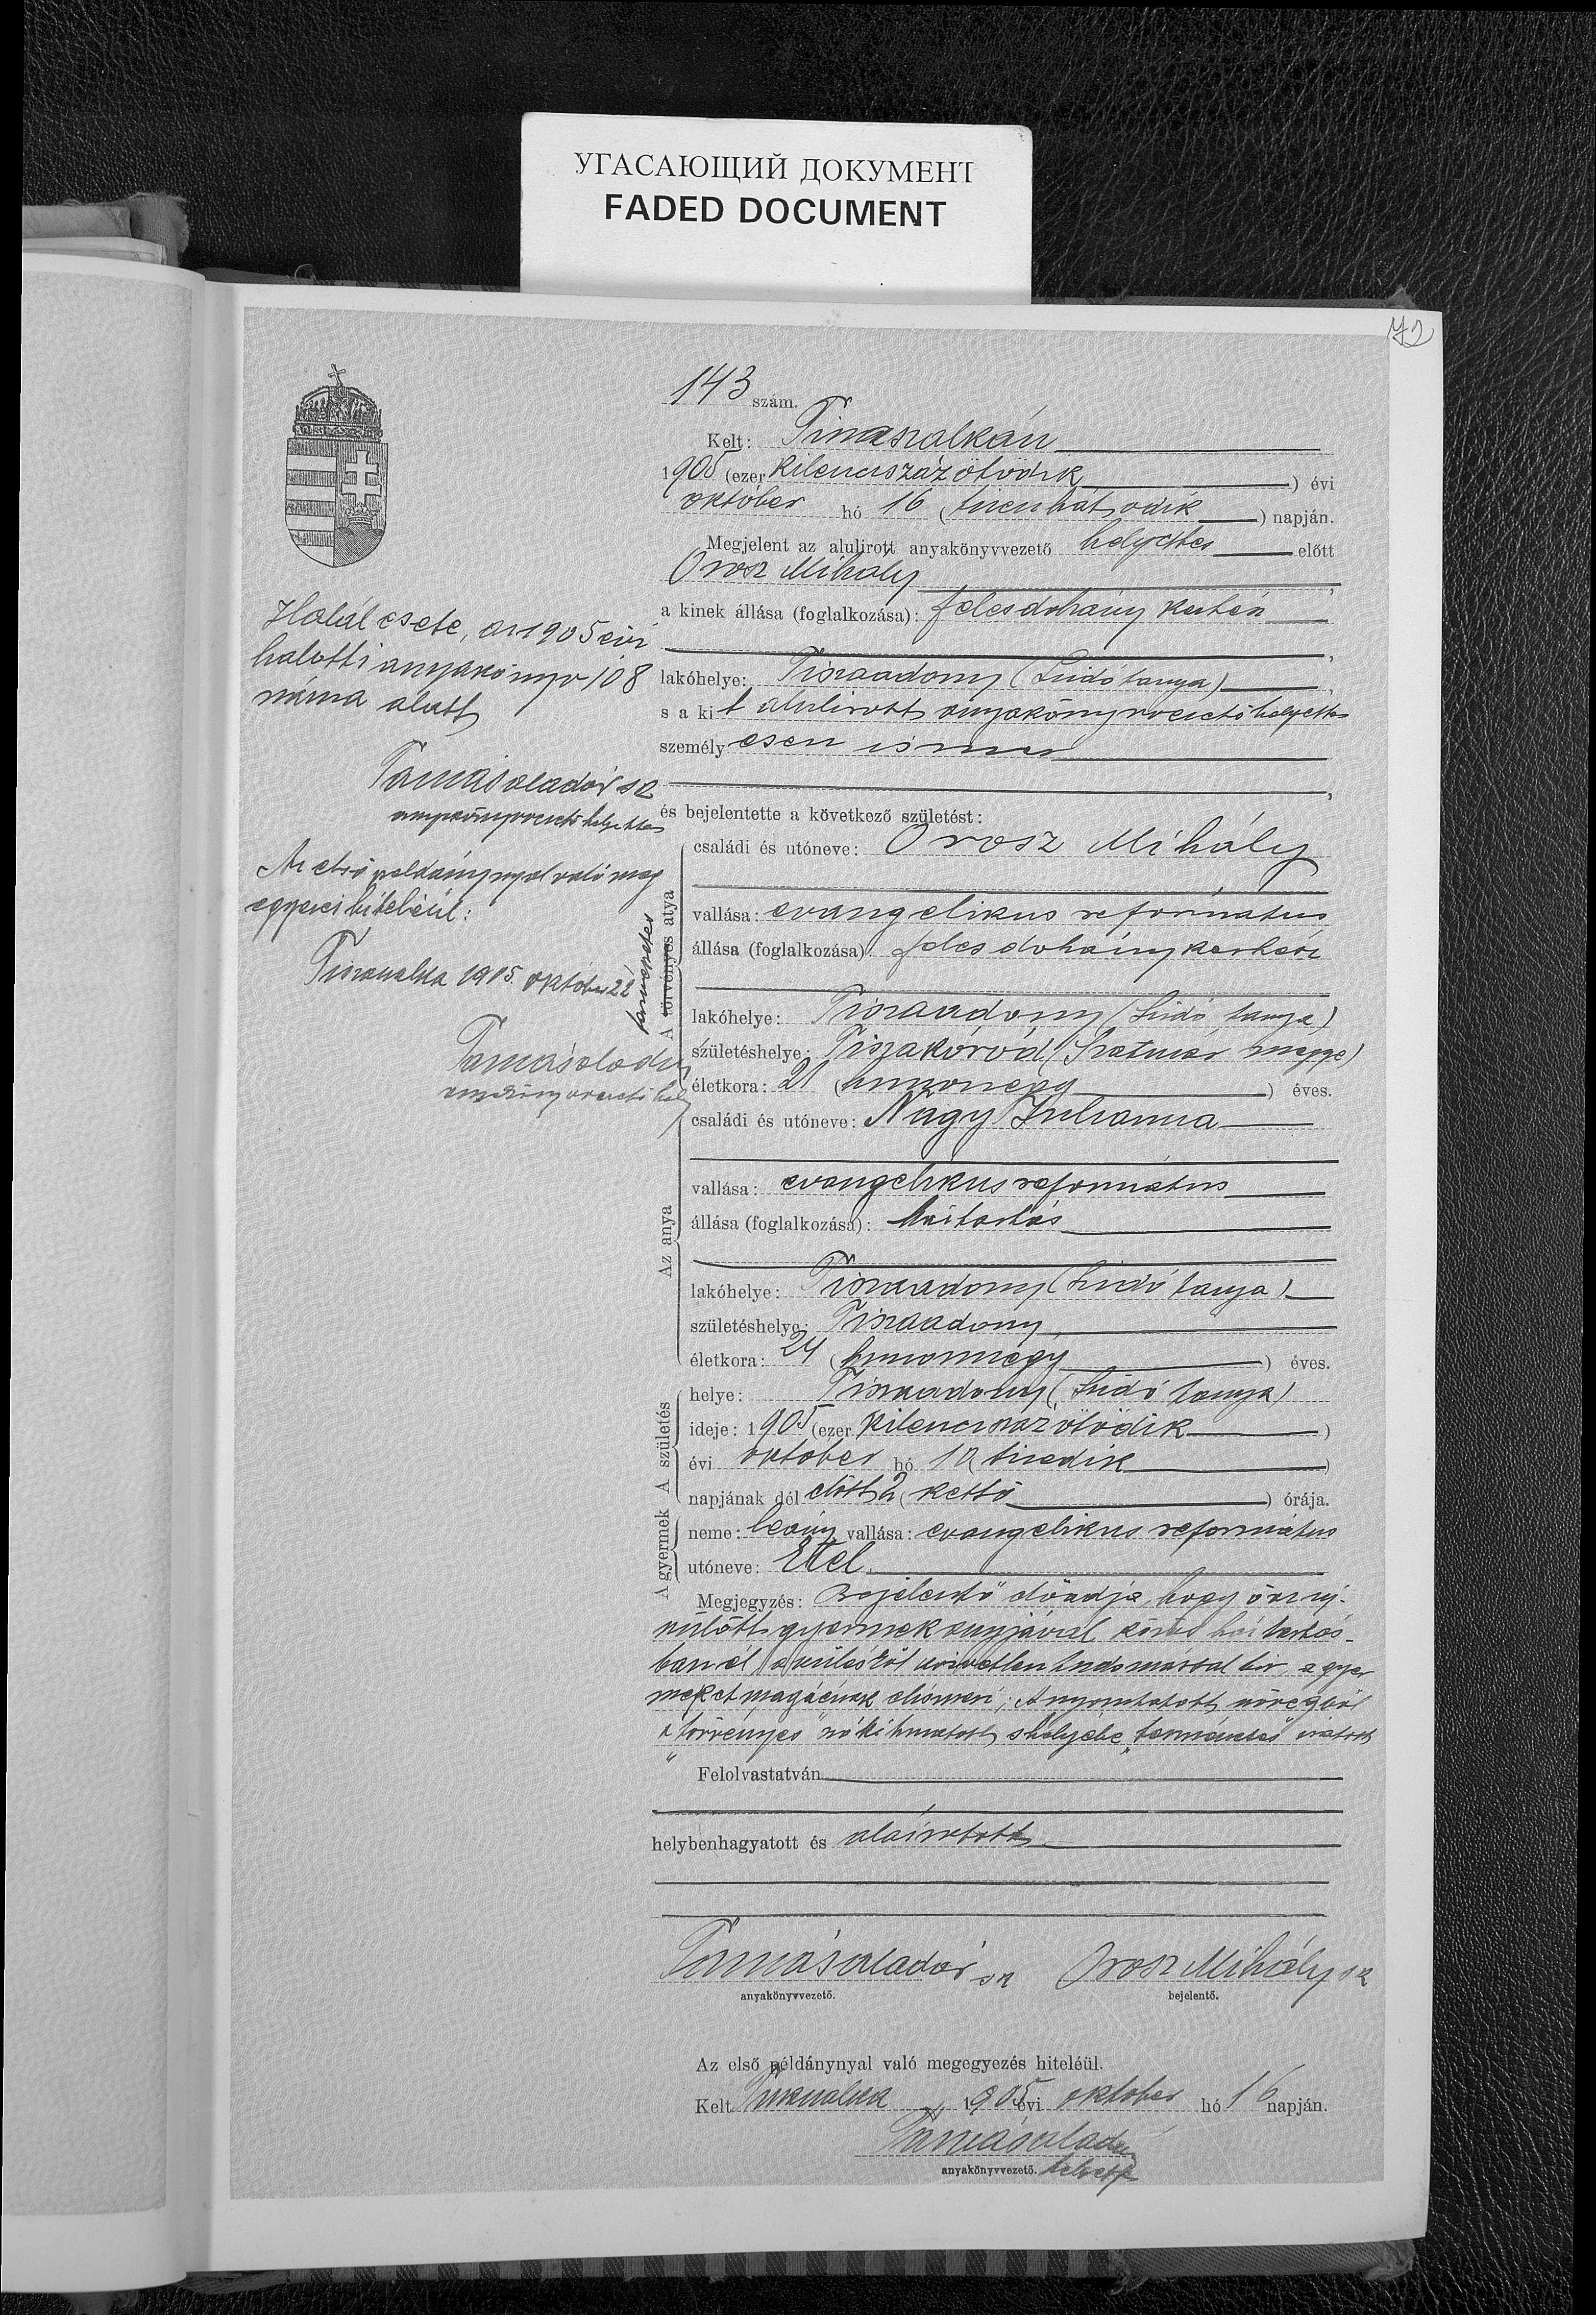 УГАСАЮЩИЙ ДОКУМЕНТ
FADED DOCUMENT
72
143 szám.
Kelt: Tiszaszalkán
1905 (ezer kilenczszáz ötödik) évi
október hó 16 (tizenhatodik) napján.
Megjelent az alulirott anyakönyvvezető helyettes előtt
Orosz Mihály,
a kinek állása (foglalkozása): feles dohány kertész
,
lakóhelye: Tiszaadony (Lúdó tanya),
s a kit alulirott anyakönyvvezető helyettes
személyesen ismer
,
és bejelentette a következő születést:
A törvényes atya
természetes
családi és utóneve: Orosz Mihály
vallása: evangelikus református
állása (foglalkozása): feles dohánykertész
lakóhelye: Tiszaadony (Lúdó tanya)
születéshelye: Tiszakóród (Szatmár megye)
életkora: 21 (huszonegy) éves.
Az anya
családi és utóneve: Nagy Julianna
vallása: evangelikus református
állása (foglalkozása): háztartás
lakóhelye: Tiszaadony (Lúdó tanya)
születéshelye: Tiszaadony
életkora: 24 (huszonnégy) éves.
A születés
helye: Tiszaadony (Lúdó tanya)
ideje: 1905 (ezer kilenczszáz ötödik)
évi október hó 10 (tizedik)
napjának dél előtt 2 (kettő) órája.
A gyermek
neme: leány vallása: evangelikus református
utóneve: Etel
Megjegyzés: Bejelentő előadja, hogy ő az új-
szülött gyermek anyjával közös háztartás-
ban él, a szülésről közvetlen tudomással bír, a gyer
meket magáénak elismeri; A nyomtatott szövegből
a "törvényes" szó kihúzatott s helyébe "természetes" iratott
Felolvastatván
helybenhagyatott és aláiratott
Tamás Aladár sk
anyakönyvvezető.
Orosz Mihály sk
bejelentő.
Az első példánynyal való megegyezés hiteléül.
Kelt Tiszaszalka 1905 évi október hó 16 napján.
Tamás Aladár
anyakönyvvezető. helyett
Halál esete, az 1905 évi
halotti anyakönyv 108
száma alatt
Tamás Aladár sk
anyakönyvvezető helyettes
Az első példánynyal való meg
egyezés hiteléül:
Tiszaszalka 1905. október 22
Tamás Aladár
anyakönyvvezető hely